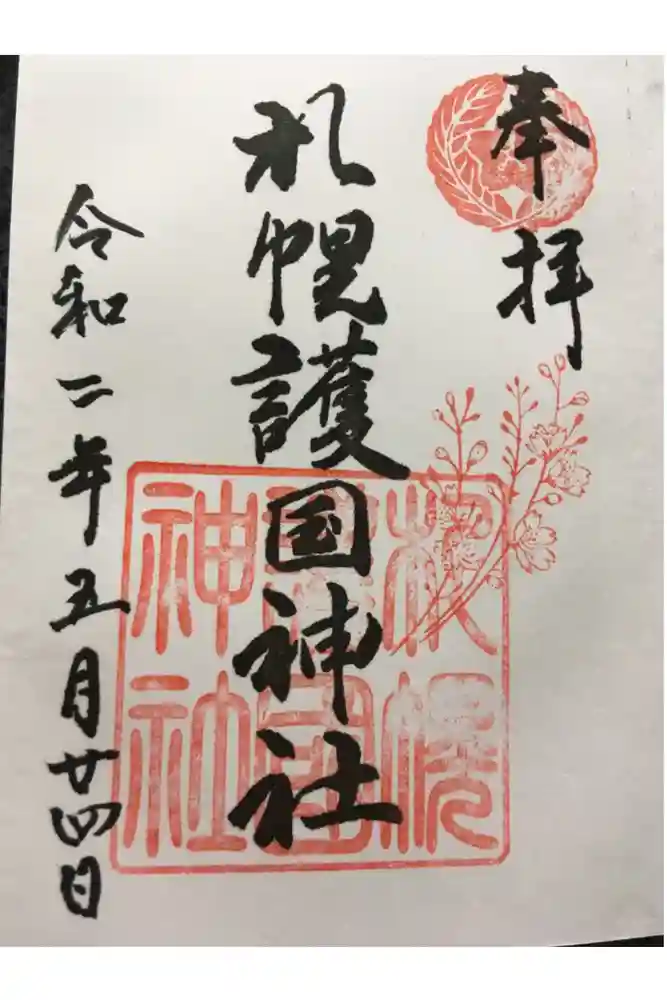 奉拝
札幌護国神社
令和二年五月廿四日
札幌
護國
神社